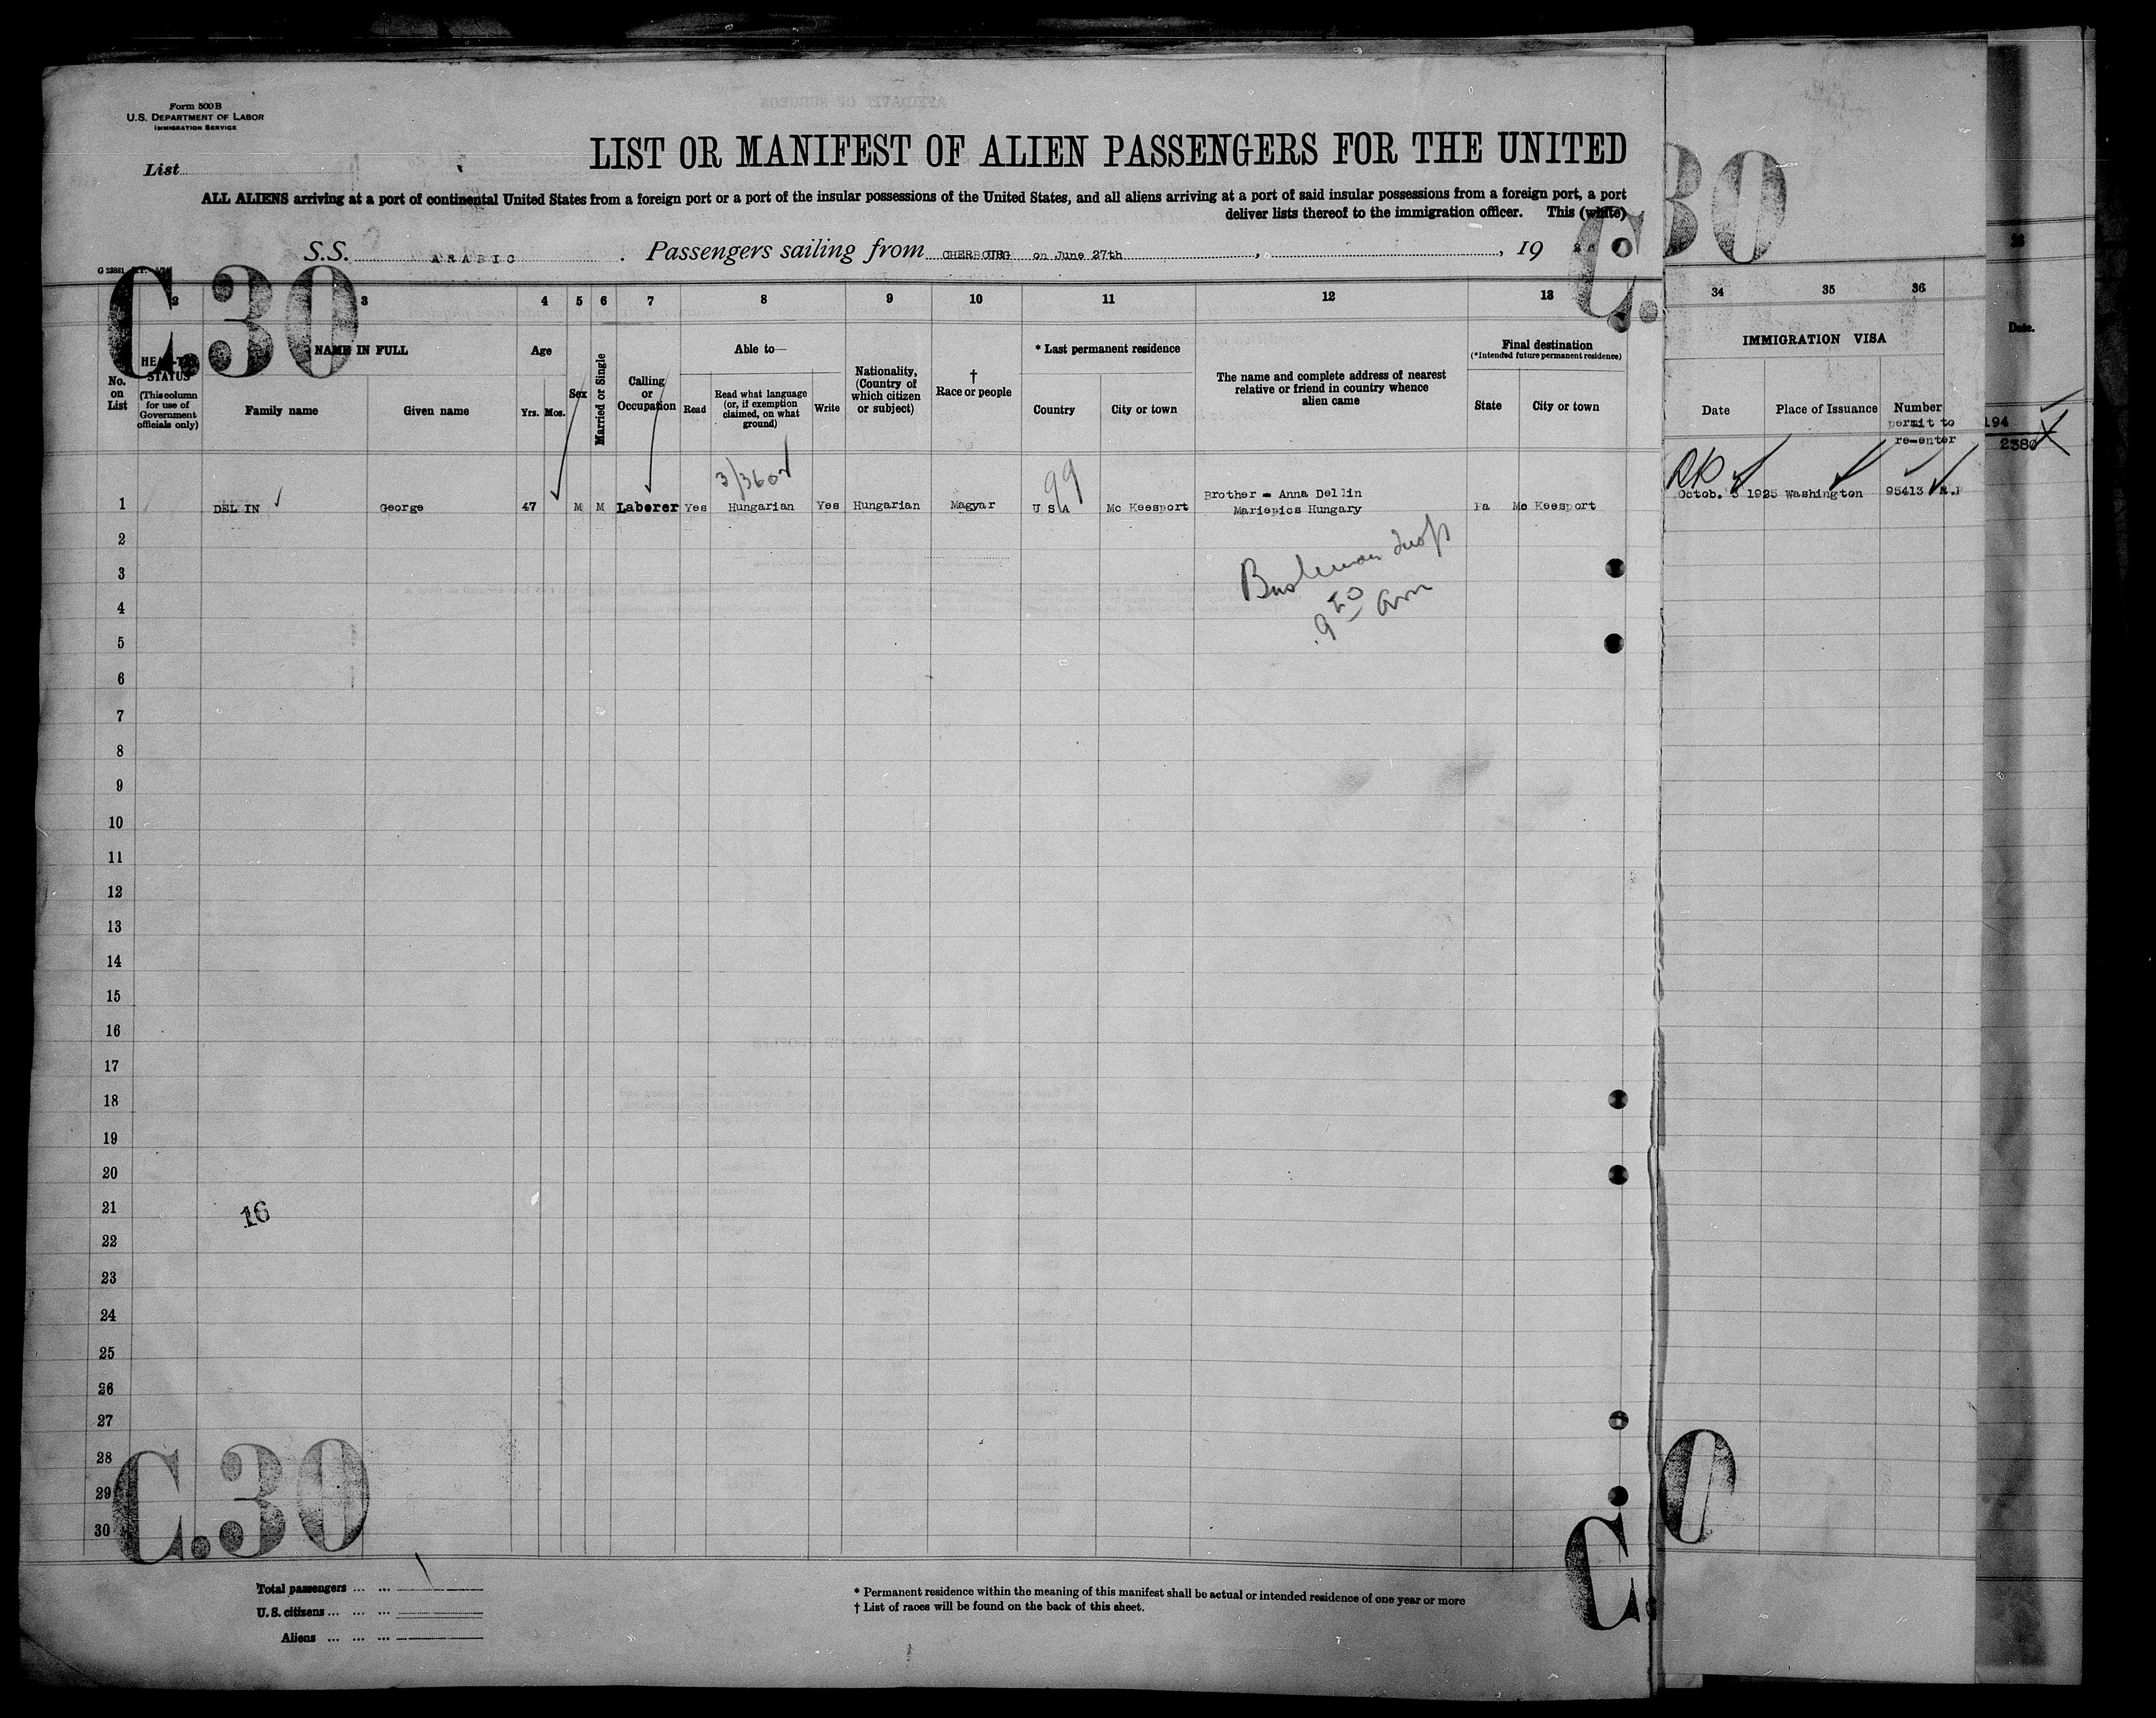 Form 500B
U.S. DEPARTMENT OF LABOR
IMMIGRATION SERVICE
List
LIST OR MANIFEST OF ALIEN PASSENGERS FOR THE UNITED
ALL ALIENS arriving at a port of continental United States from a foreign port or a port of the insular possessions of the United States, and all aliens arriving at a port of said insular possessions from a foreign port, a port
deliver lists thereof to the immigration officer. This (white)
S.S. ARABIC. Passengers sailing from CHERBOURG on June 27th, , 19
C.30
C.30
2 3 4 5 6 7 8 9 10 11 12 13 34 35 36
No. on List
HEAD-TAX STATUS
(This column for use of Government officials only)
NAME IN FULL
Family name
Given name
Age
Yrs. Mos.
Sex
Married or Single
Calling or Occupation
Able to—
Read
Read what language (or, if exemption claimed, on what ground)
Write
Nationality, (Country of which citizen or subject)
† Race or people
* Last permanent residence
Country
City or town
The name and complete address of nearest relative or friend in country whence alien came
Final destination
(*Intended future permanent residence)
State
City or town
IMMIGRATION VISA
Date
Place of Issuance
Number
permit to
re-enter
Date.
194
2380
99
1 DELIN George 47 M M Laborer Yes Hungarian Yes Hungarian Magyar U S A Mc Keesport Brother - Anna Dellin Pa Mc Keesport Octob. 3 1925 Washington 95413
Mariepics Hungary
2
3
4
5
6
7
8
9
10
11
12
13
14
15
16
17
18
19
20
21
16
22
23
24
25
26
27
28
29
30
C.30
C.
0
Total passengers
U.S. citizens
Aliens
* Permanent residence within the meaning of this manifest shall be actual or intended residence of one year or more
† List of races will be found on the back of this sheet.